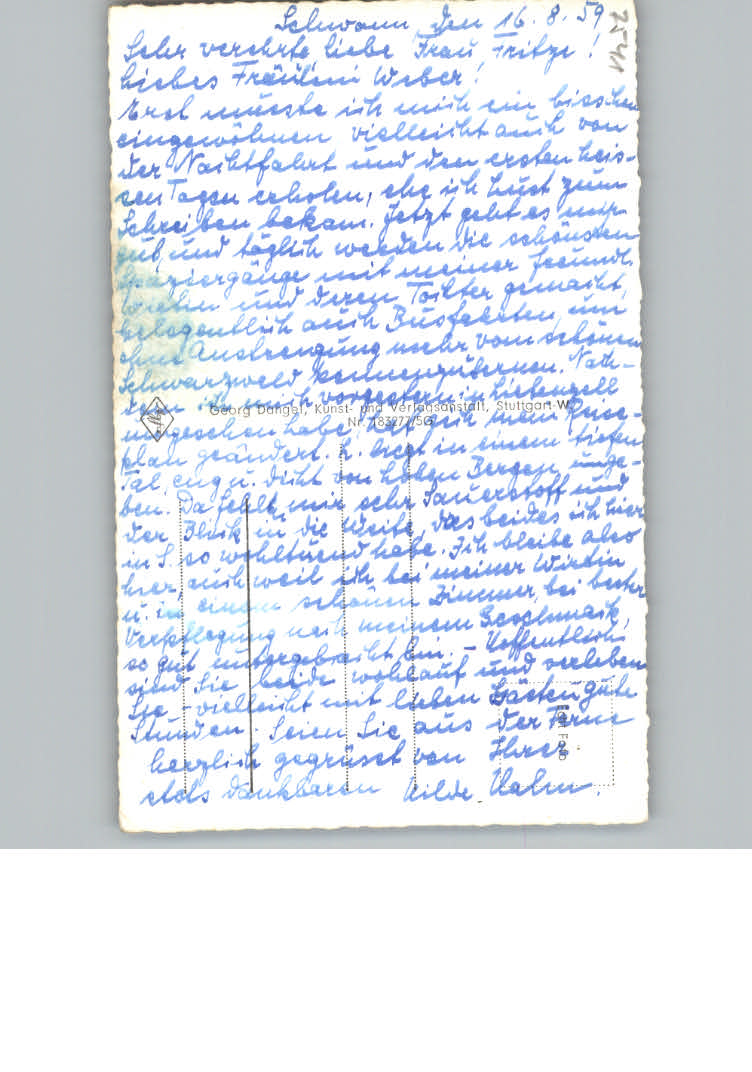 Schwann, den 16.8.59
7541
Sehr verehrte liebe Frau Fritze!
Liebes Fräulein Weber!
Erst musste ich mich ein bisschen
eingewöhnen vielleicht auch von
der Nachtfahrt und den ersten heis-
sen Tagen erholen, ehe ich Lust zum
Schreiben bekam. Jetzt geht es mir
gut und täglich werden die schönsten
Spaziergänge mit meiner freundl.
Wirtin und deren Tochter gemacht,
gelegentlich auch Busfahrten, um
ohne Anstrengung mehr vom schönen
Schwarzwald kennenzulernen. Nach-
dem ich mich vorgestern in Liebenzell
umgesehen habe, hat sich mein Reise-
plan geändert. L. liegt in einem tiefen
Tal, eng u. dicht von hohen Bergen umge-
ben. Da fehlt mir sehr Sauerstoff und
der Blick in die Weite, das beides ich hier
in S. so wohltuend habe. Ich bleibe also
hier, auch weil ich bei meiner Wirtin
u. in einem schönen Zimmer, bei bester
Verpflegung nach meinem Geschmack,
so gut untergebracht bin. – Hoffentlich
sind Sie beide wohlauf und verleben
Sie – vielleicht mit lieben Gästen gute
Stunden. Seien Sie aus der Ferne
herzlich gegrüsst von Ihrer
stets dankbaren Hilde Halm.
Georg Dangel, Kunst- und Verlagsanstalt, Stuttgart-W
Nr. 183277/5G
Foto